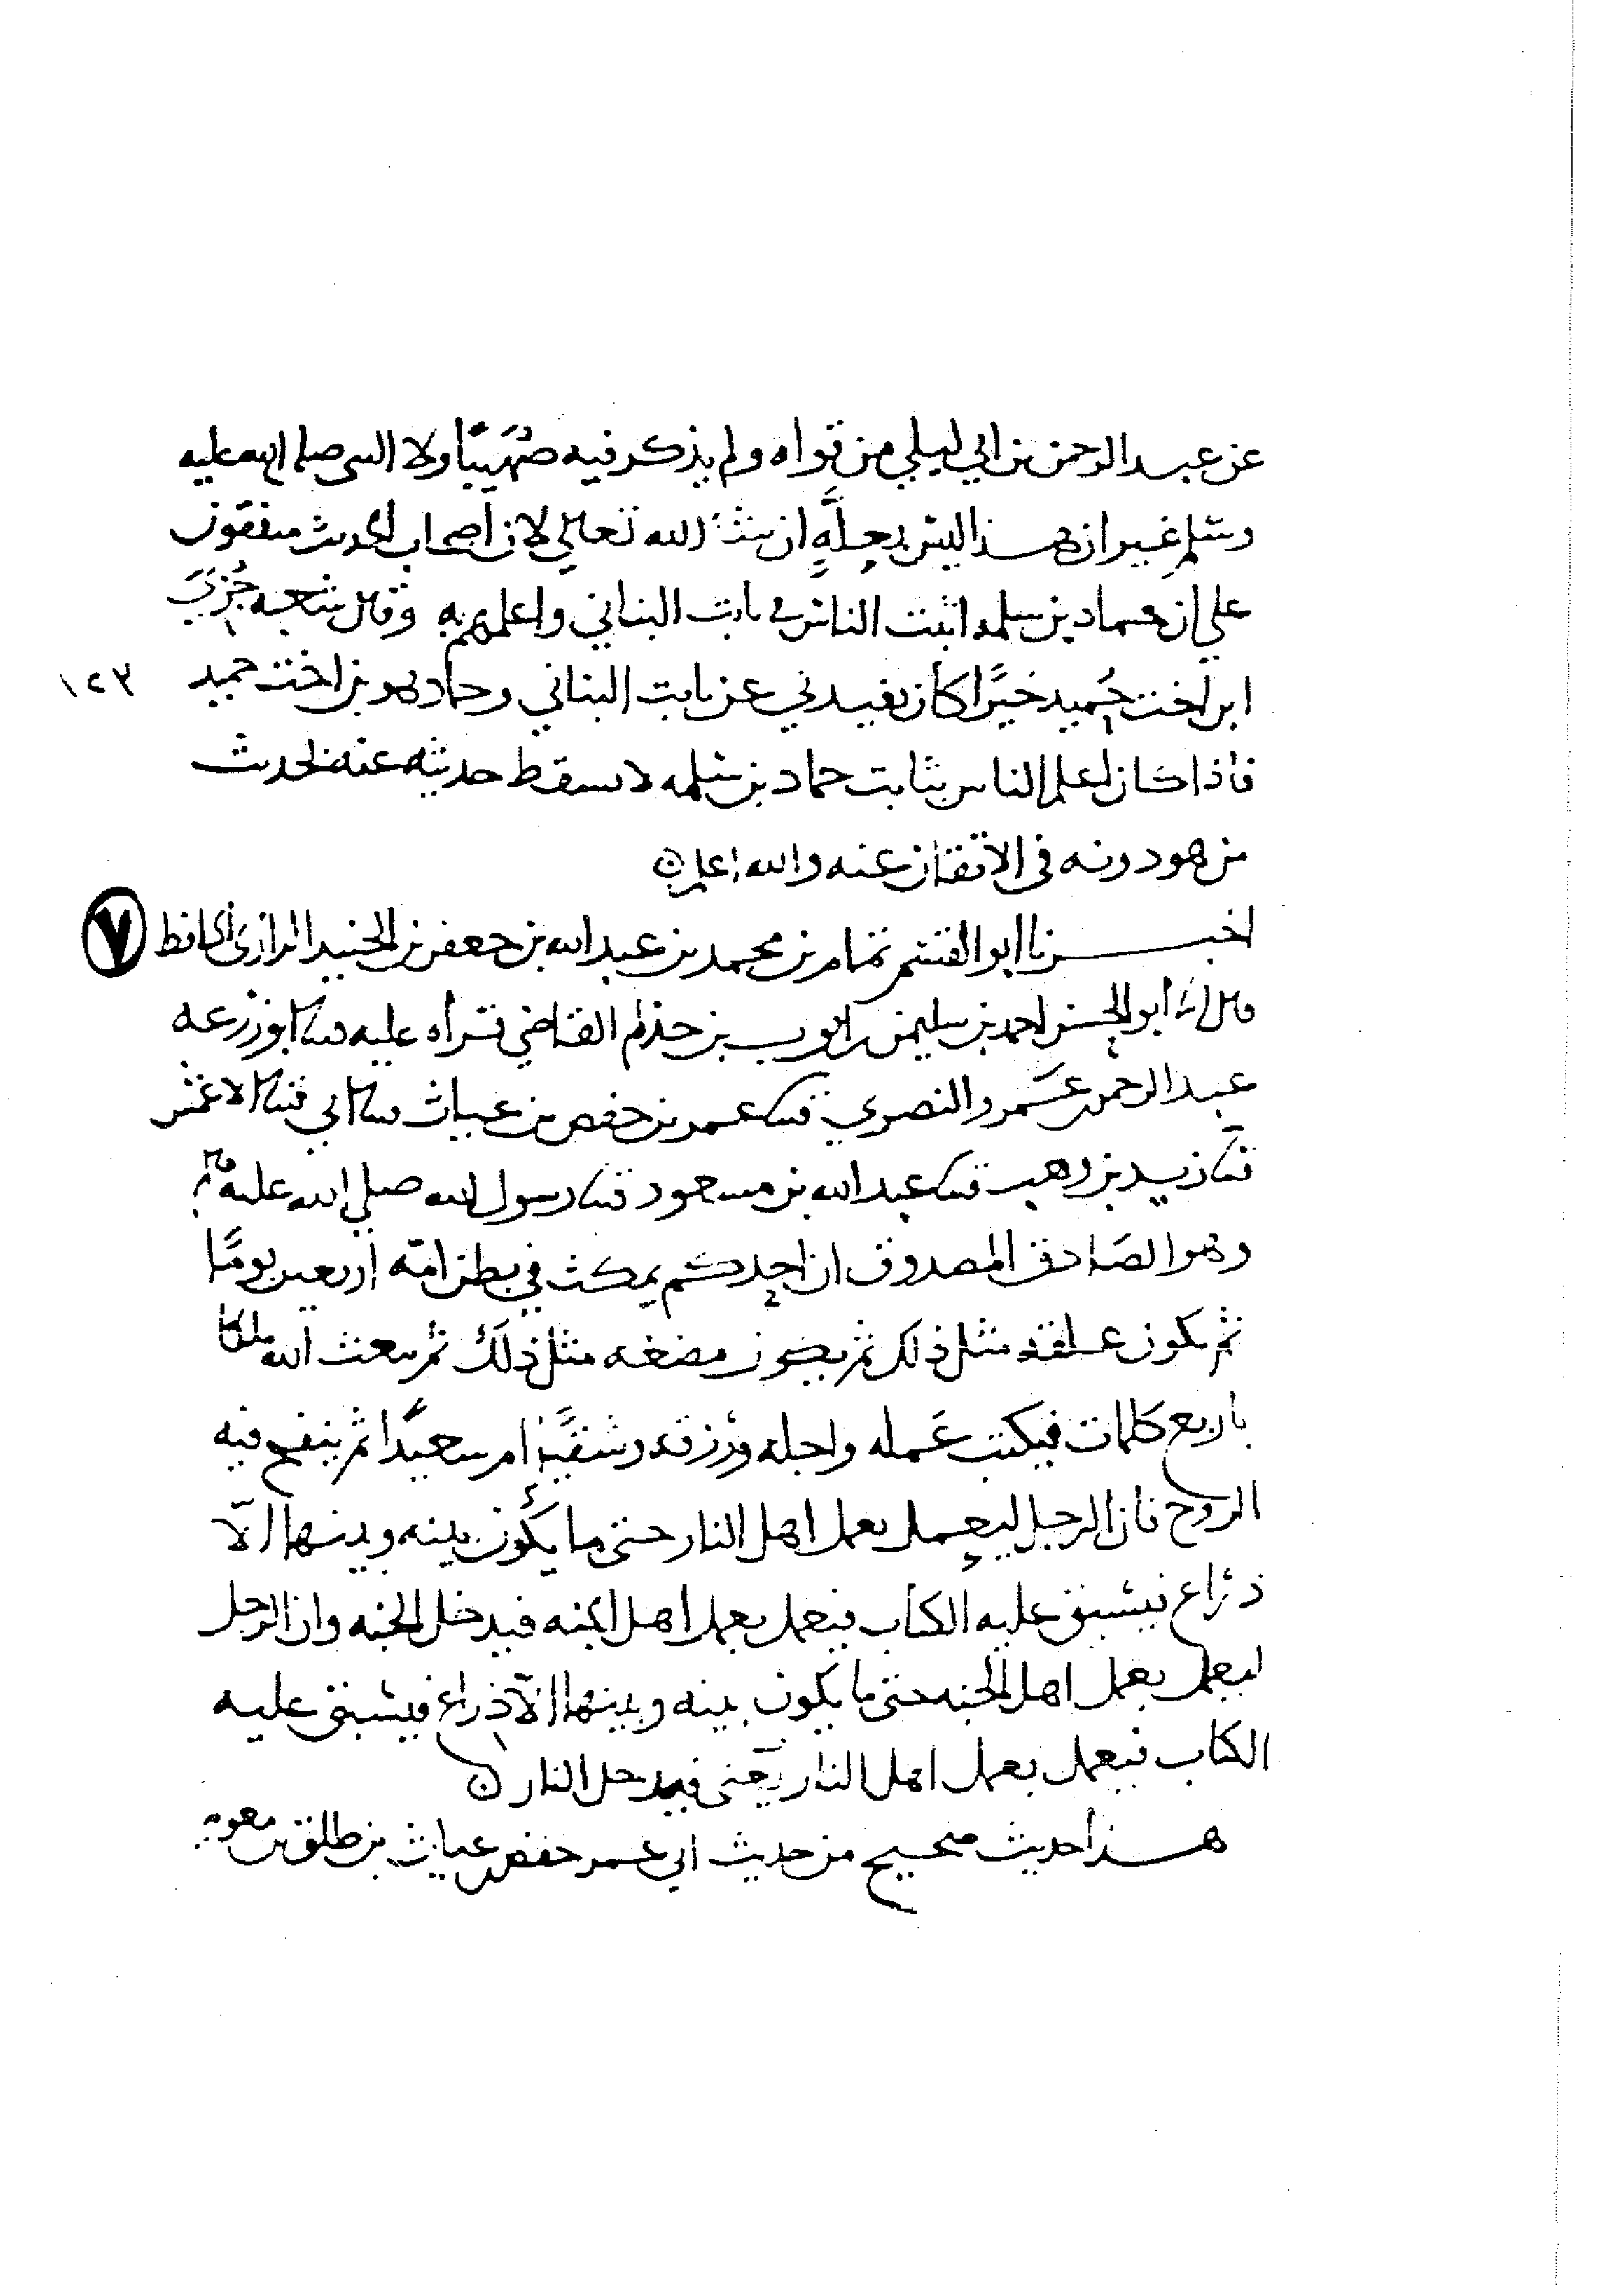 عن عبد الرحمن بن ابي ليلي من قوله ولم يذكر فيه صُهَيبًا ولا النبي صلى الله عليه
وسلم غير ان هذا ليس بعلَّةٍ ان شآ الله تعالي لان اصحاب الحديث متفقون
علي ان حماد بن سلمه اثبت الناس في ثابت البناني واعلمهم به وقال شعبه جُزي
ابن اخت حُميد خيرًا كان يفيدني عن ثابت البناني وحماد هو بن اخت حميد
١٢٣
فاذا كان اعلم الناس بثابت حماد بن سلمه لا يسقط حديثه عنه لحديث
من هو دونه في الاتقان عنه والله اعلم
٧
اخبرنا ابو القسم تمام بن محمد بن عبد الله بن جعفر بن الجنيد الرازي الحافظ
قال انا ابو الحسن احمد بن سليمن بن ايوب بن حذلم القاضي قراه عليه ثنا ابو زرعه
عبد الرحمن بن عَمرو النصري ثنا عمر بن حفص بن غياث ثنا ابي ثنا الاعمش
ثنا زيد بن وهب ثنا عبد الله بن مسعود ثنا رسول الله صلي الله عليه وسلم
وهو الصَادق المصدوق ان احدكم يمكث في بطن امّه اربعين يومًا
ثم يكون علقه مثل ذلك ثم يكون مضغه مثل ذلك ثم يبعث الله ملكا
باربع كلمات فيكتب عَمله واجله ورزقه وشقيًّا ام سعيدًا ثم ينفخ فيه
الروح فان الرجل ليعمل بعمل اهل النار حتى ما يكون بينه وبينها الّا
ذراع فيسبق عليه الكتاب فيعمل بعمل اهل الجنه فيدخل الجنه وان الرجل
ليعمل بعمل اهل الجنه حتى ما يكون بينه وبينها الّا ذراع فيسبق عليه
الكتاب فيعمل بعمل اهل النار يعني فيدخل النار
هذا حديث صحيح من حديث ابي عمر حفص بن غياث بن طلق بن معويه